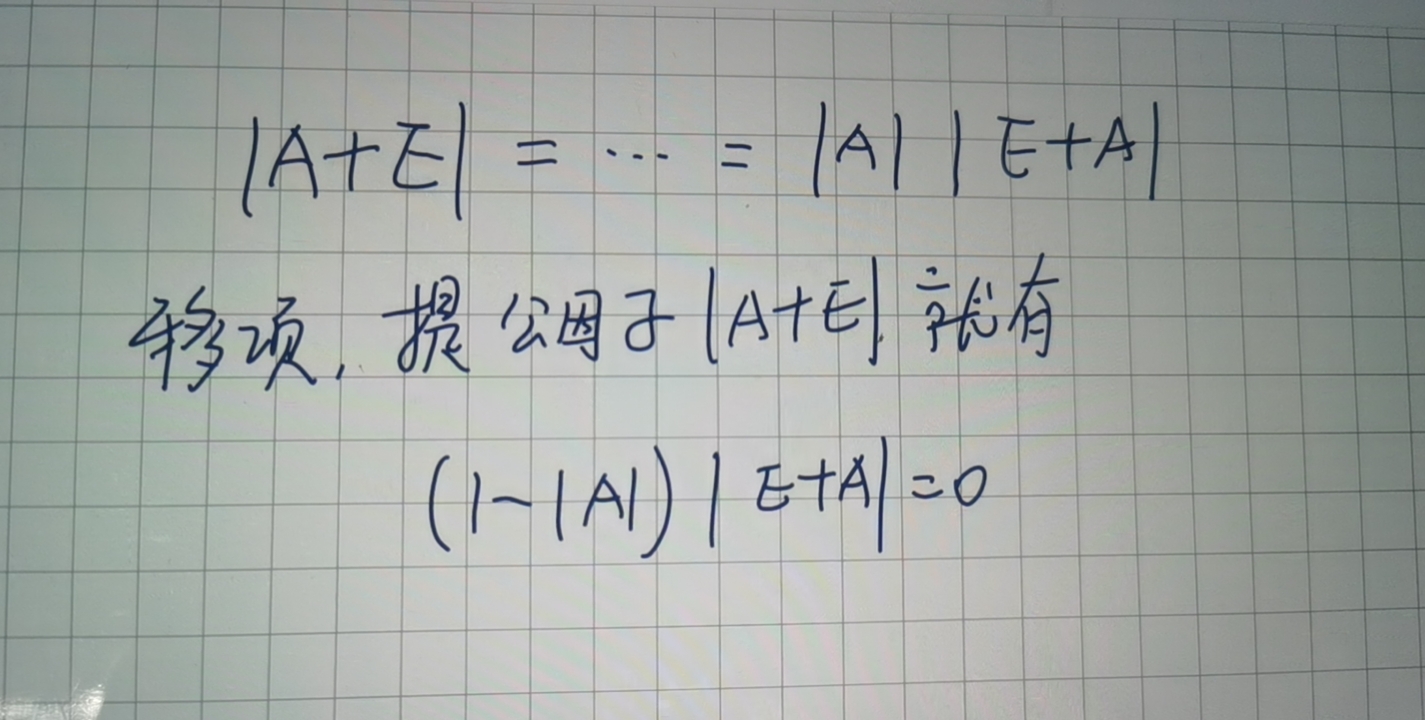 |A+E| = ⋯ = |A| |E+A|
移项, 提公因子|A+E|就有
(1-|A|)|E+A|=0